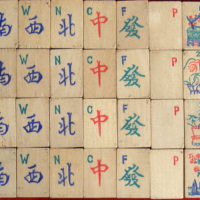 W N C F P
西 北 中 發
W N C F P
西 北 中 發
W N C F P
西 北 中 發
W N C F P
西 北 中 發